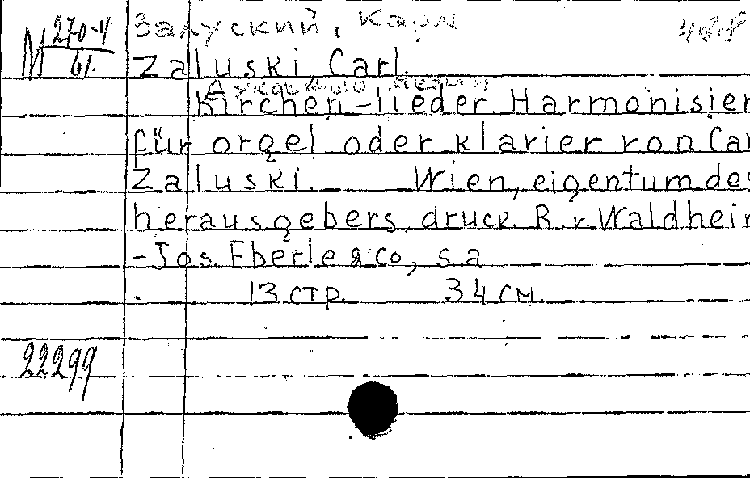 Залуский, Карл
М 270-4/61.
488
Zaluski Carl.
Kirchen-lieder Harmonisier
für orgel oder klavier von Car
Zaluski. Wien, eigentum des
herausgebers, druck. R. v. Waldheim
-Jos. Eberle & Co, s.a
13 стр. 34 см.
22299